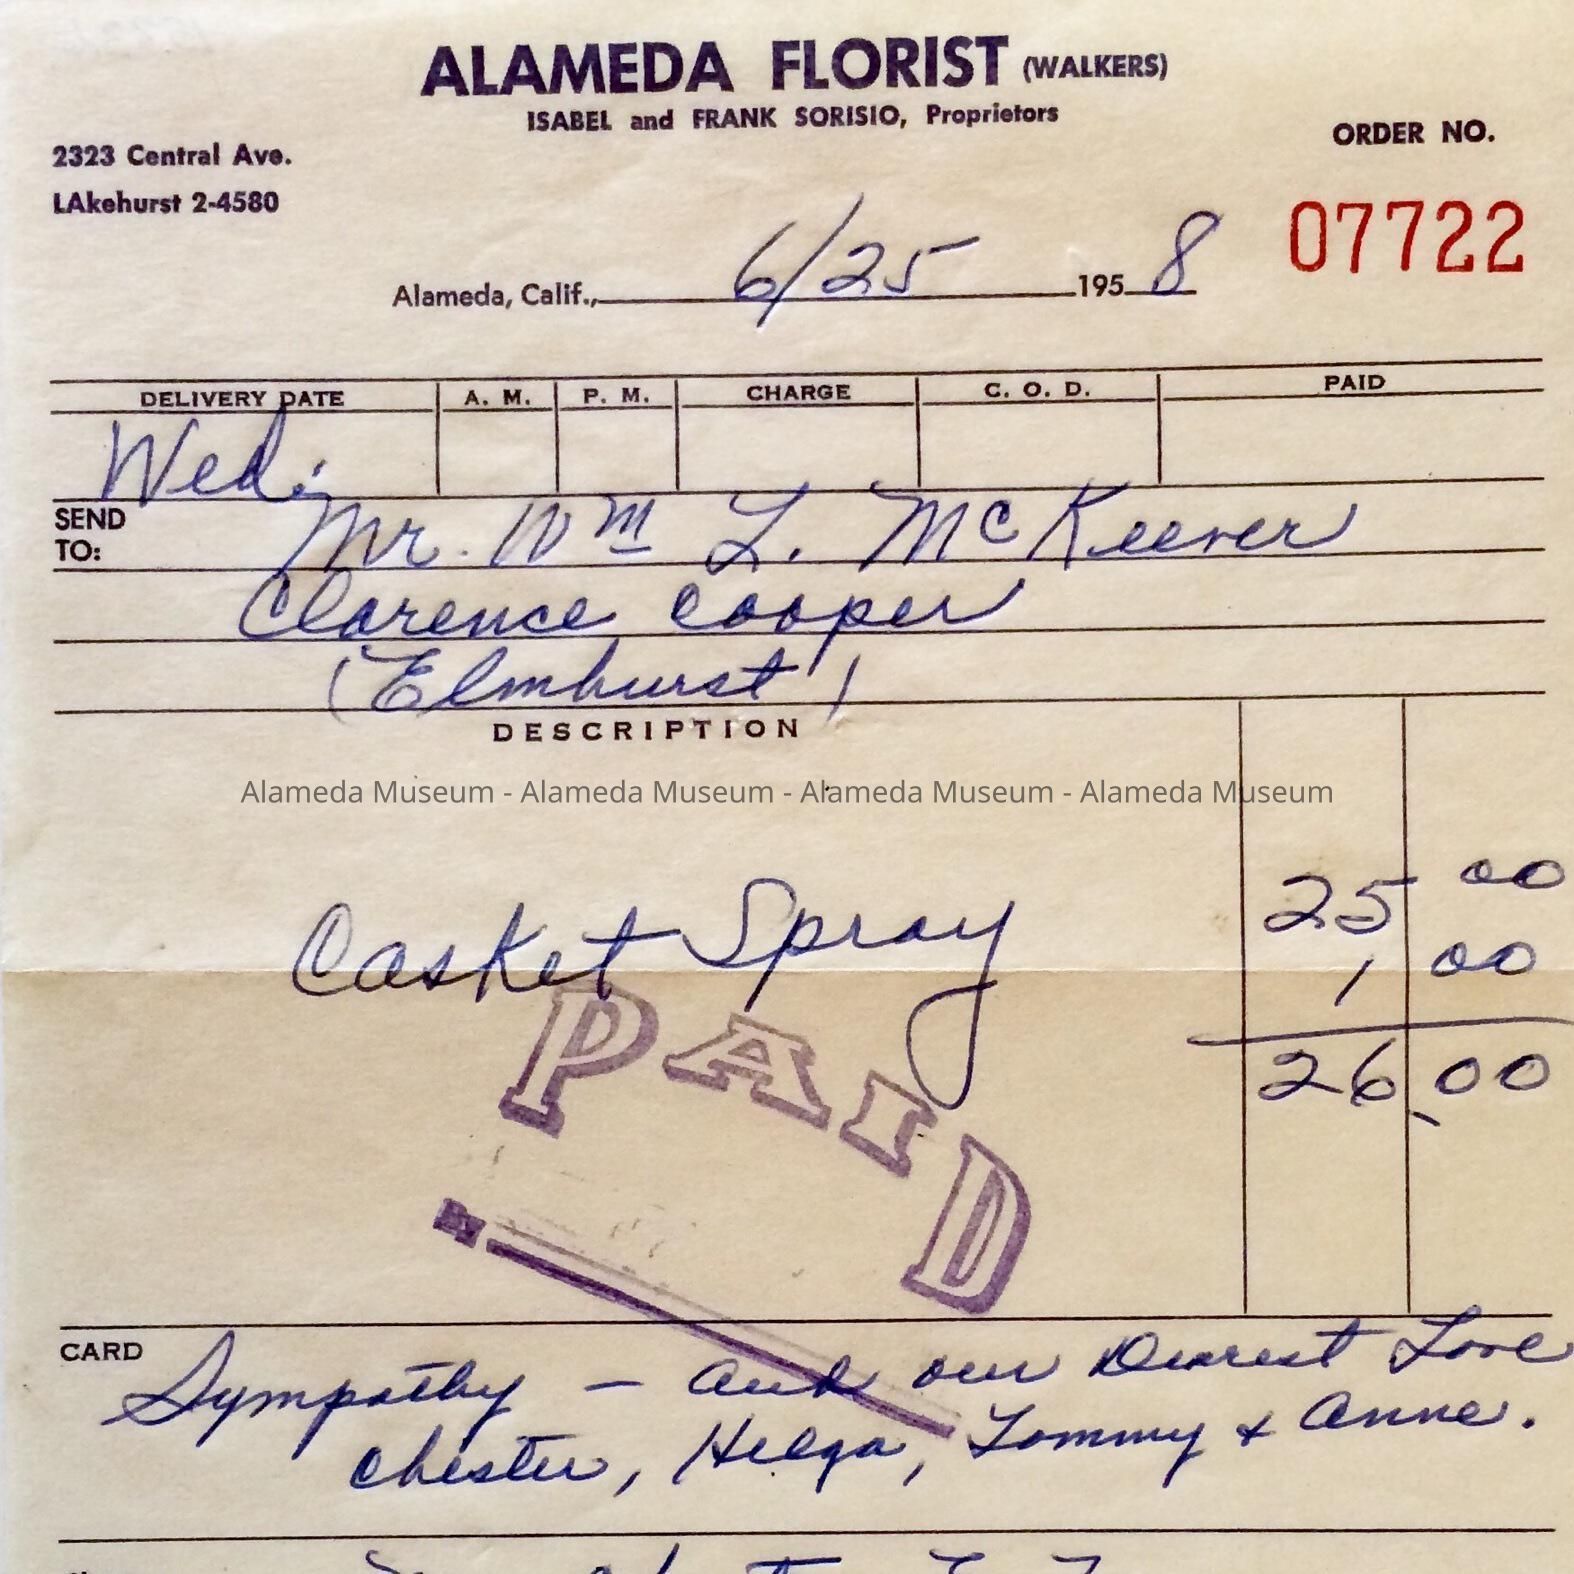 ALAMEDA FLORIST (WALKERS)
ISABEL and FRANK SORISIO, Proprietors
2323 Central Ave.
LAkehurst 2-4580
ORDER NO.
07722
Alameda, Calif., 6/25 1958
DELIVERY DATE A. M. P. M. CHARGE C. O. D. PAID
Wed.
SEND TO: Mr. Wm L. McKeever
Clarence Cooper
(Elmhurst)
DESCRIPTION
Alameda Museum - Alameda Museum - Alameda Museum - Alameda Museum
Casket Spray 25 00
1 00
26.00
PAID
By
CARD
Sympathy - and our Dearest Love
Chester, Helga, Tommy & Anne.